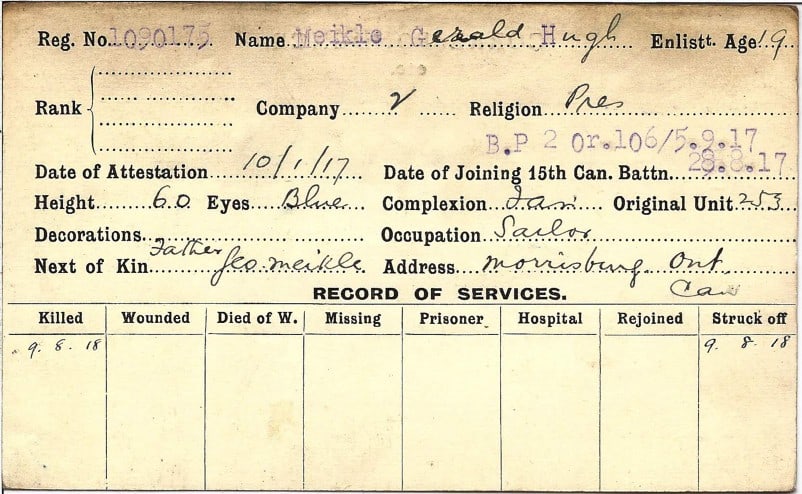 Reg. No. 1090175 Name Meikle Gerald Hugh Enlistt. Age 19
Rank Company 2 Religion Pres
B.P 2 Or.106/5.9.17
Date of Attestation 10/1/17 Date of Joining 15th Can. Battn. 28.8.17
Height 60 Eyes Blue Complexion Fair Original Unit 253
Decorations Occupation Sailor
Next of Kin Father Geo. Meikle Address Morrisburg Ont Can
RECORD OF SERVICES.
Killed Wounded Died of W. Missing Prisoner Hospital Rejoined Struck off
9. 8. 18 9. 8. 18